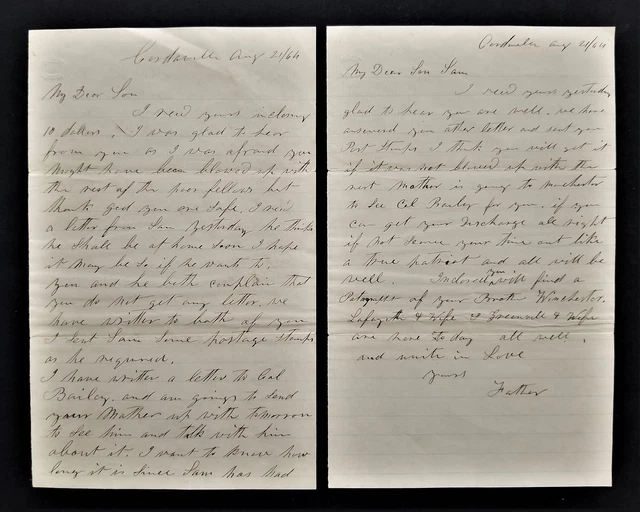 Cordaville Aug 21/64
My Dear Son
I recd yours inclosing
10 dollars. I was glad to hear
from you as I was afraid you
might have been blowed up with
the rest of the poor fellows but
thank god you are safe. I recd
a letter from Sam yesterday he thinks
he shall be at home soon I hope
it may be so if he wants to.
you and he both complain that
you do not get any letter. we
have written to both of you
I sent Sam some postage stamps
as he required.
I have written a letter to Col
Bailey. and am going to send
your Mother up with tomorrow
to see him and talk with him
about it. I want to know how
long it is since Sam has had
Cordaville Aug 21/64
My Dear Son Sam
I recd yours yesterday
glad to hear you are well. we have
answered you other letter and sent you
Post Stamps I think you will get it
if it was not blowed up with the
rest Mother is going to
to see Col Bailey for you. if you
can get your Discharge all right
if not serve your time out like
a true patriot and all will be
well. you will find a
of your Broth Winchester.
Lafayette & Wife & & Wife
are here to day all well.
and unite in Love
yours
Father